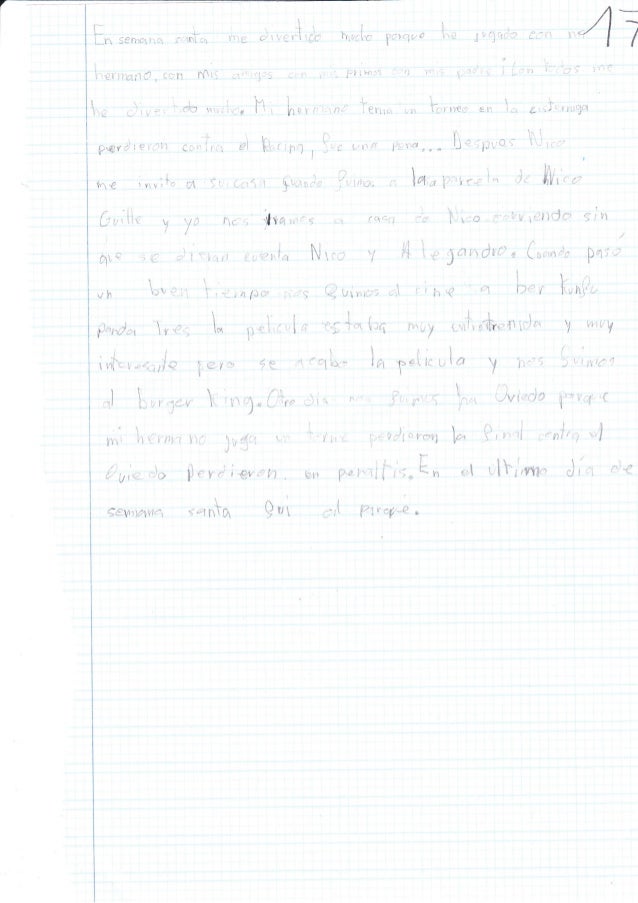 17
En semana santa me divertido mucho porque he jugado con mi
hermano, con mis amigos con mis primos con mis padres ¡Con todos me
he divertido mucho. Mi hermano tenia un torneo en la cisterniga
perdieron contra el Racing, fue una pena... Despues Nico
me invito a su casa quando fuimos a la parcela de Nico
Guille y yo nos ivamos a casa de Nico corriendo sin
que se dieran cuenta Nico y Alegandro. Cuando pasó
un buen tiempo nos fuimos al cine a ber Kunfu
panda Tres la pelicula estaba muy entretenida y muy
interesante pero se acabo la pelicula y nos fuimos
al burger King. Otro dia nos fuimos ha Oviedo porque
mi hermano juga un torne perdieron la final contra el
Oviedo Perdieron en penaltis. En el ultimo día de
semana santa fui al parque.